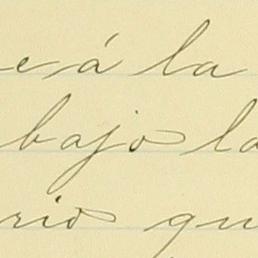 e á la
bajo la
rio qu